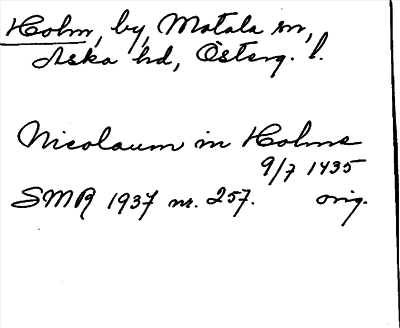 Holm, by, Motala sn,
Aska hd, Österg. l.
Nicolaum in Holme
9/7 1435
SMR 1937 nr. 257. orig.